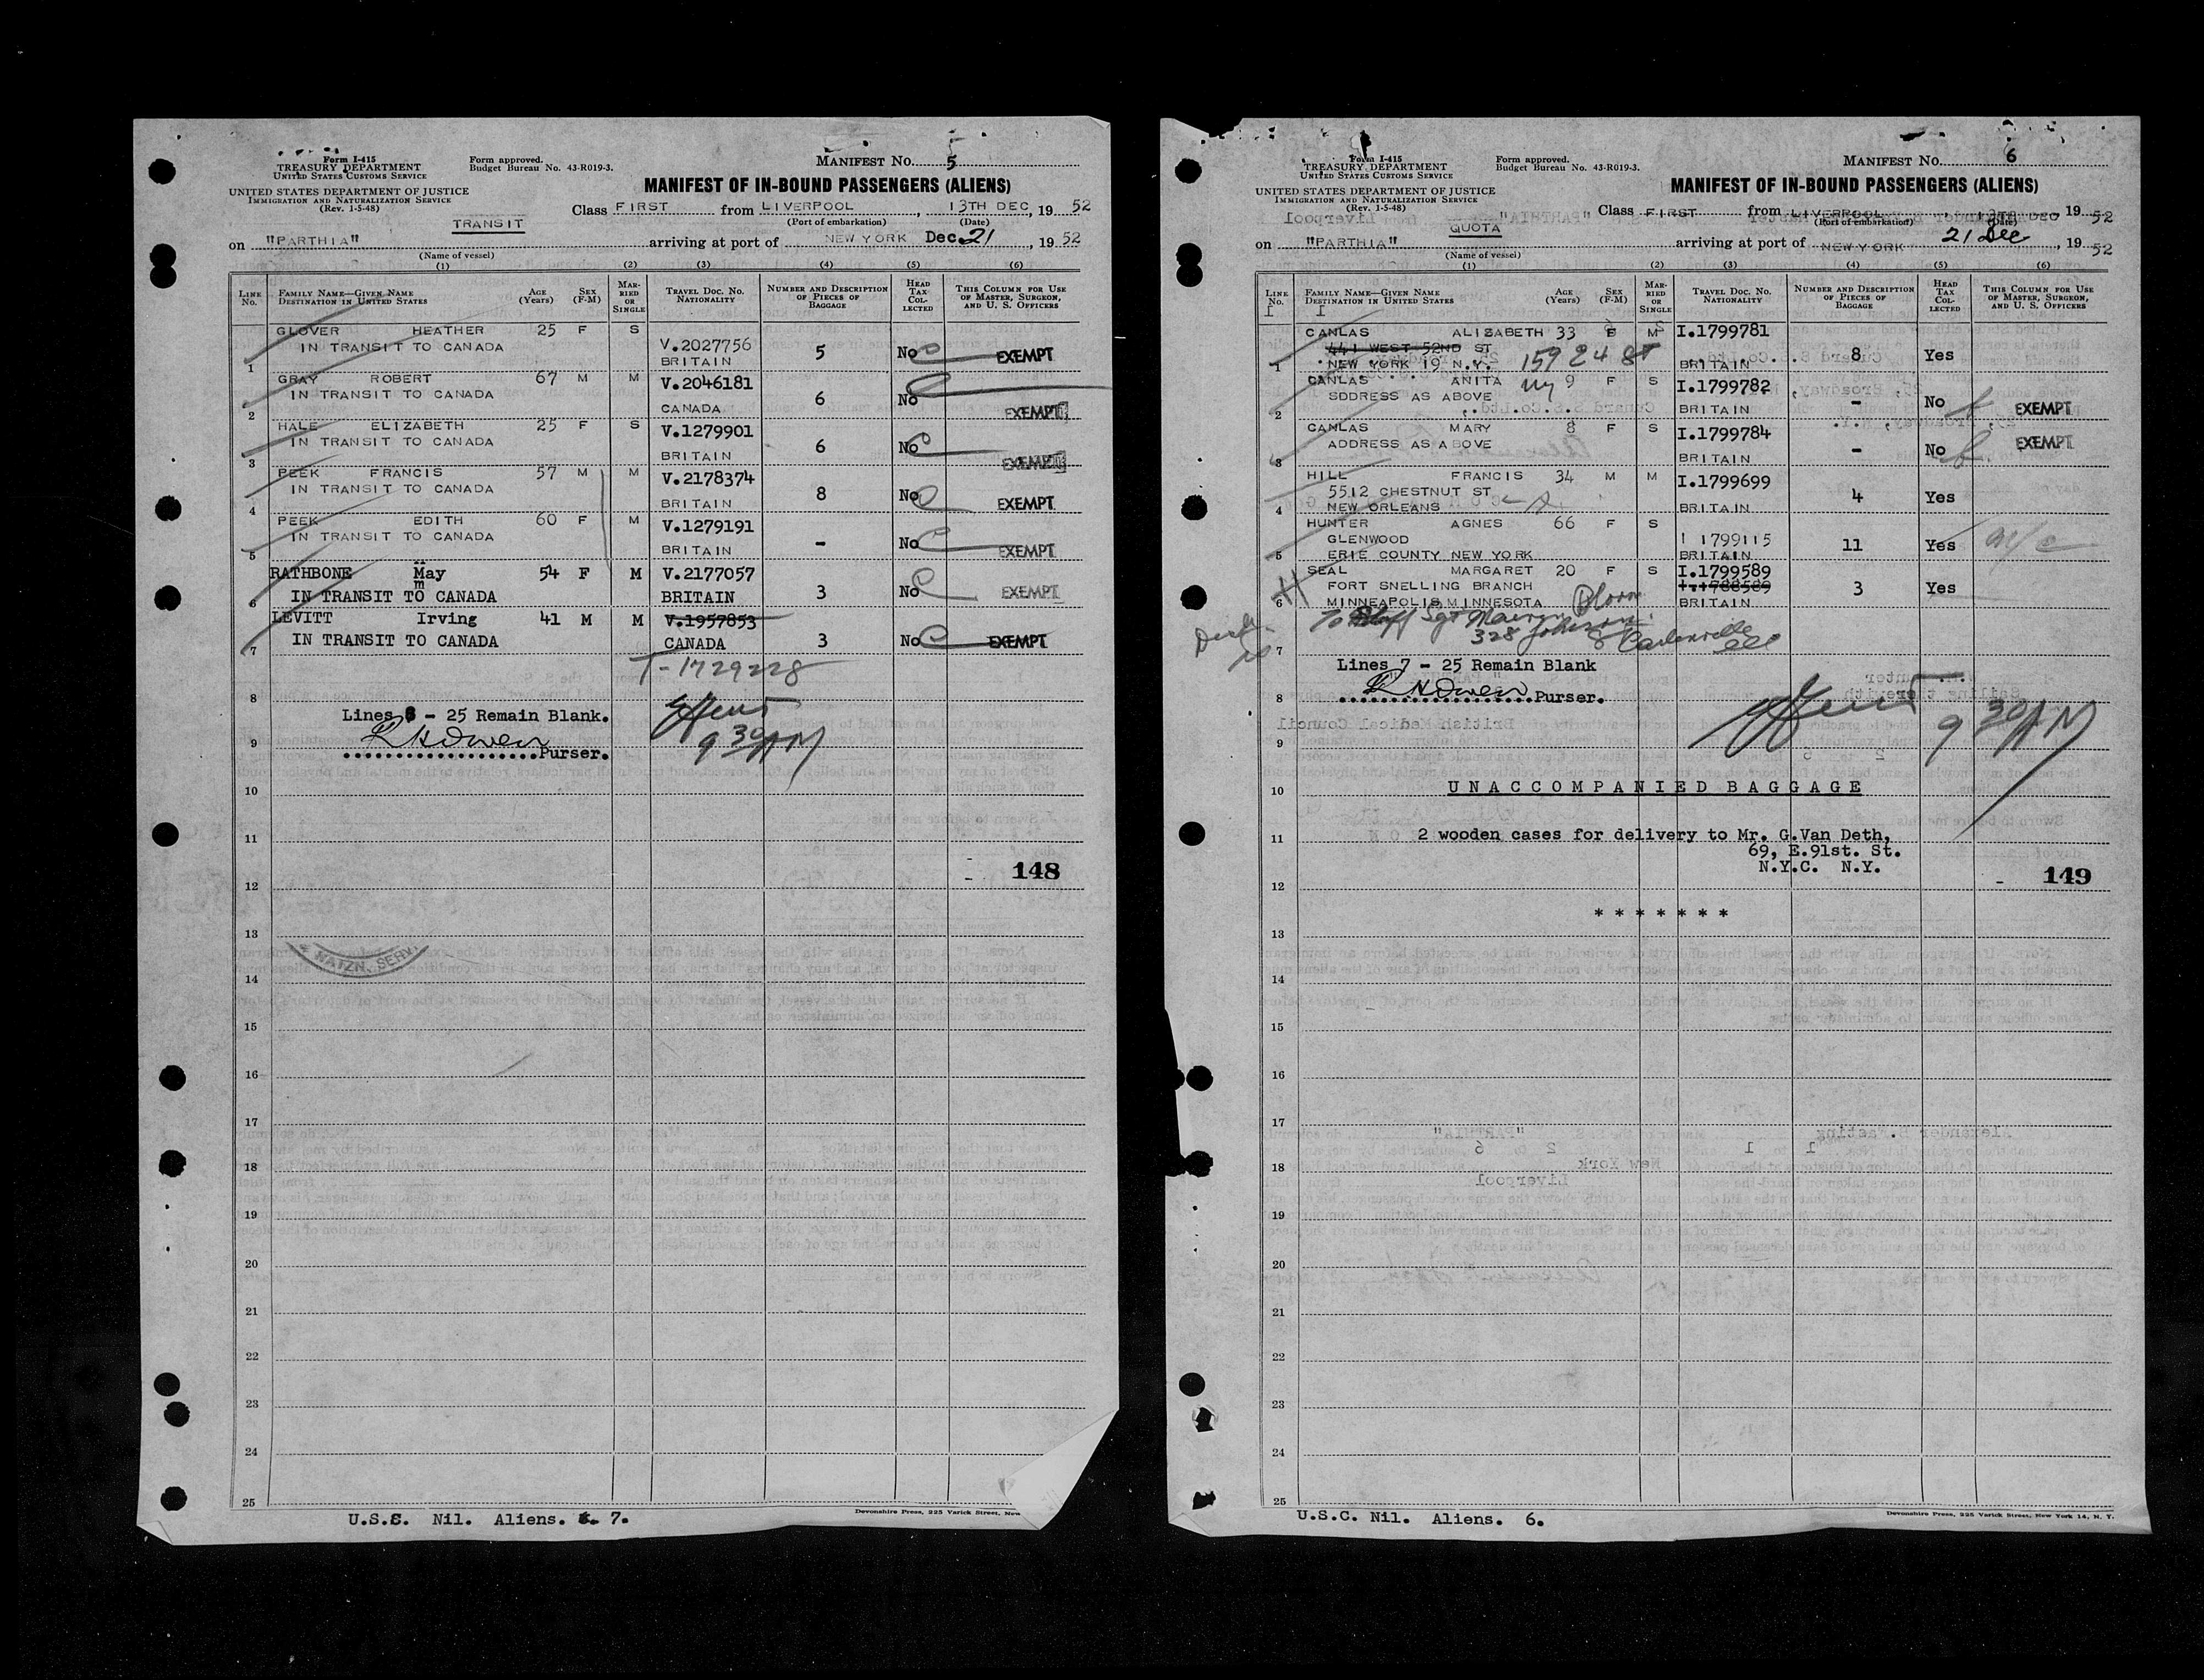 Form I-415
TREASURY DEPARTMENT
UNITED STATES CUSTOMS SERVICE
Form approved.
Budget Bureau No. 43-R019-3.
MANIFEST No. 5
UNITED STATES DEPARTMENT OF JUSTICE
IMMIGRATION AND NATURALIZATION SERVICE
(Rev. 1-5-48)
MANIFEST OF IN-BOUND PASSENGERS (ALIENS)
TRANSIT
Class FIRST from LIVERPOOL, 13TH DEC, 1952
(Port of embarkation) (Date)
on "PARTHIA" arriving at port of NEW YORK Dec 21, 1952
(Name of vessel)
(1) (2) (3) (4) (5) (6)
LINE No. FAMILY NAME—GIVEN NAME DESTINATION IN UNITED STATES AGE (Years) SEX (F-M) MARRIED OR SINGLE TRAVEL DOC. No. NATIONALITY NUMBER AND DESCRIPTION OF PIECES OF BAGGAGE HEAD TAX COLLECTED THIS COLUMN FOR USE OF MASTER, SURGEON, AND U. S. OFFICERS
GLOVER HEATHER 25 F S V.2027756
1 IN TRANSIT TO CANADA BRITAIN 5 No EXEMPT
GRAY ROBERT 67 M M V.2046181
2 IN TRANSIT TO CANADA CANADA 6 No EXEMPT
HALE ELIZABETH 25 F S V.1279901
3 IN TRANSIT TO CANADA BRITAIN 6 No EXEMPT
PEEK FRANCIS 57 M M V.2178374
4 IN TRANSIT TO CANADA BRITAIN 8 No EXEMPT
PEEK EDITH 60 F M V.1279191
5 IN TRANSIT TO CANADA BRITAIN - No EXEMPT
RATHBONE May 54 F M V.2177057
6 IN TRANSIT TO CANADA BRITAIN 3 No EXEMPT
LEVITT Irving 41 M M V.1957853
7 IN TRANSIT TO CANADA CANADA 3 No EXEMPT
T-1729228
8
Lines 8 - 25 Remain Blank.
RHOwen
9 Purser.
9 30 AM
10
11
148
12
13
NATZN. SERV.
14
15
16
17
18
19
20
21
22
23
24
25
U.S.C. Nil. Aliens. 7.
Devonshire Press, 225 Varick Street, New
Form I-415
TREASURY DEPARTMENT
UNITED STATES CUSTOMS SERVICE
Form approved.
Budget Bureau No. 43-R019-3.
MANIFEST No. 6
UNITED STATES DEPARTMENT OF JUSTICE
IMMIGRATION AND NATURALIZATION SERVICE
(Rev. 1-5-48)
MANIFEST OF IN-BOUND PASSENGERS (ALIENS)
QUOTA
Class FIRST from LIVERPOOL, 13TH DEC 1952
(Port of embarkation) (Date)
on "PARTHIA" arriving at port of NEW YORK 21 Dec, 1952
(Name of vessel)
(1) (2) (3) (4) (5) (6)
LINE No. FAMILY NAME—GIVEN NAME DESTINATION IN UNITED STATES AGE (Years) SEX (F-M) MARRIED OR SINGLE TRAVEL DOC. No. NATIONALITY NUMBER AND DESCRIPTION OF PIECES OF BAGGAGE HEAD TAX COLLECTED THIS COLUMN FOR USE OF MASTER, SURGEON, AND U. S. OFFICERS
CANLAS ALIZABETH 33 F M I.1799781
441 WEST 52ND ST
1 NEW YORK 19 N.Y. 159 E 24 ST BRITAIN 8 Yes
CANLAS ANITA ny 9 F S I.1799782
2 SDDRESS AS ABOVE BRITAIN - No EXEMPT
CANLAS MARY 8 F S I.1799784
3 ADDRESS AS ABOVE BRITAIN - No EXEMPT
HILL FRANCIS 34 M M I.1799699
5512 CHESTNUT ST
4 NEW ORLEANS BRITAIN 4 Yes
HUNTER AGNES 66 F S I 1799115
GLENWOOD
5 ERIE COUNTY NEW YORK BRITAIN 11 Yes
SEAL MARGARET 20 F S I.1799589
FORT SNELLING BRANCH 3 Yes
6 MINNEAPOLIS MINNESOTA BRITAIN
To Staff Sgt
328 Johnson
7
Lines 7 - 25 Remain Blank
RHOwen
8 Purser.
9 30 AM
9
10 UNACCOMPANIED BAGGAGE
11 2 wooden cases for delivery to Mr. G.Van Deth,
69, E.91st. St.
N.Y.C. N.Y.
149
12
* * * * * * *
13
14
15
16
17
18
19
20
21
22
23
24
25
U.S.C. Nil. Aliens. 6.
Devonshire Press, 225 Varick Street, New York 14, N. Y.